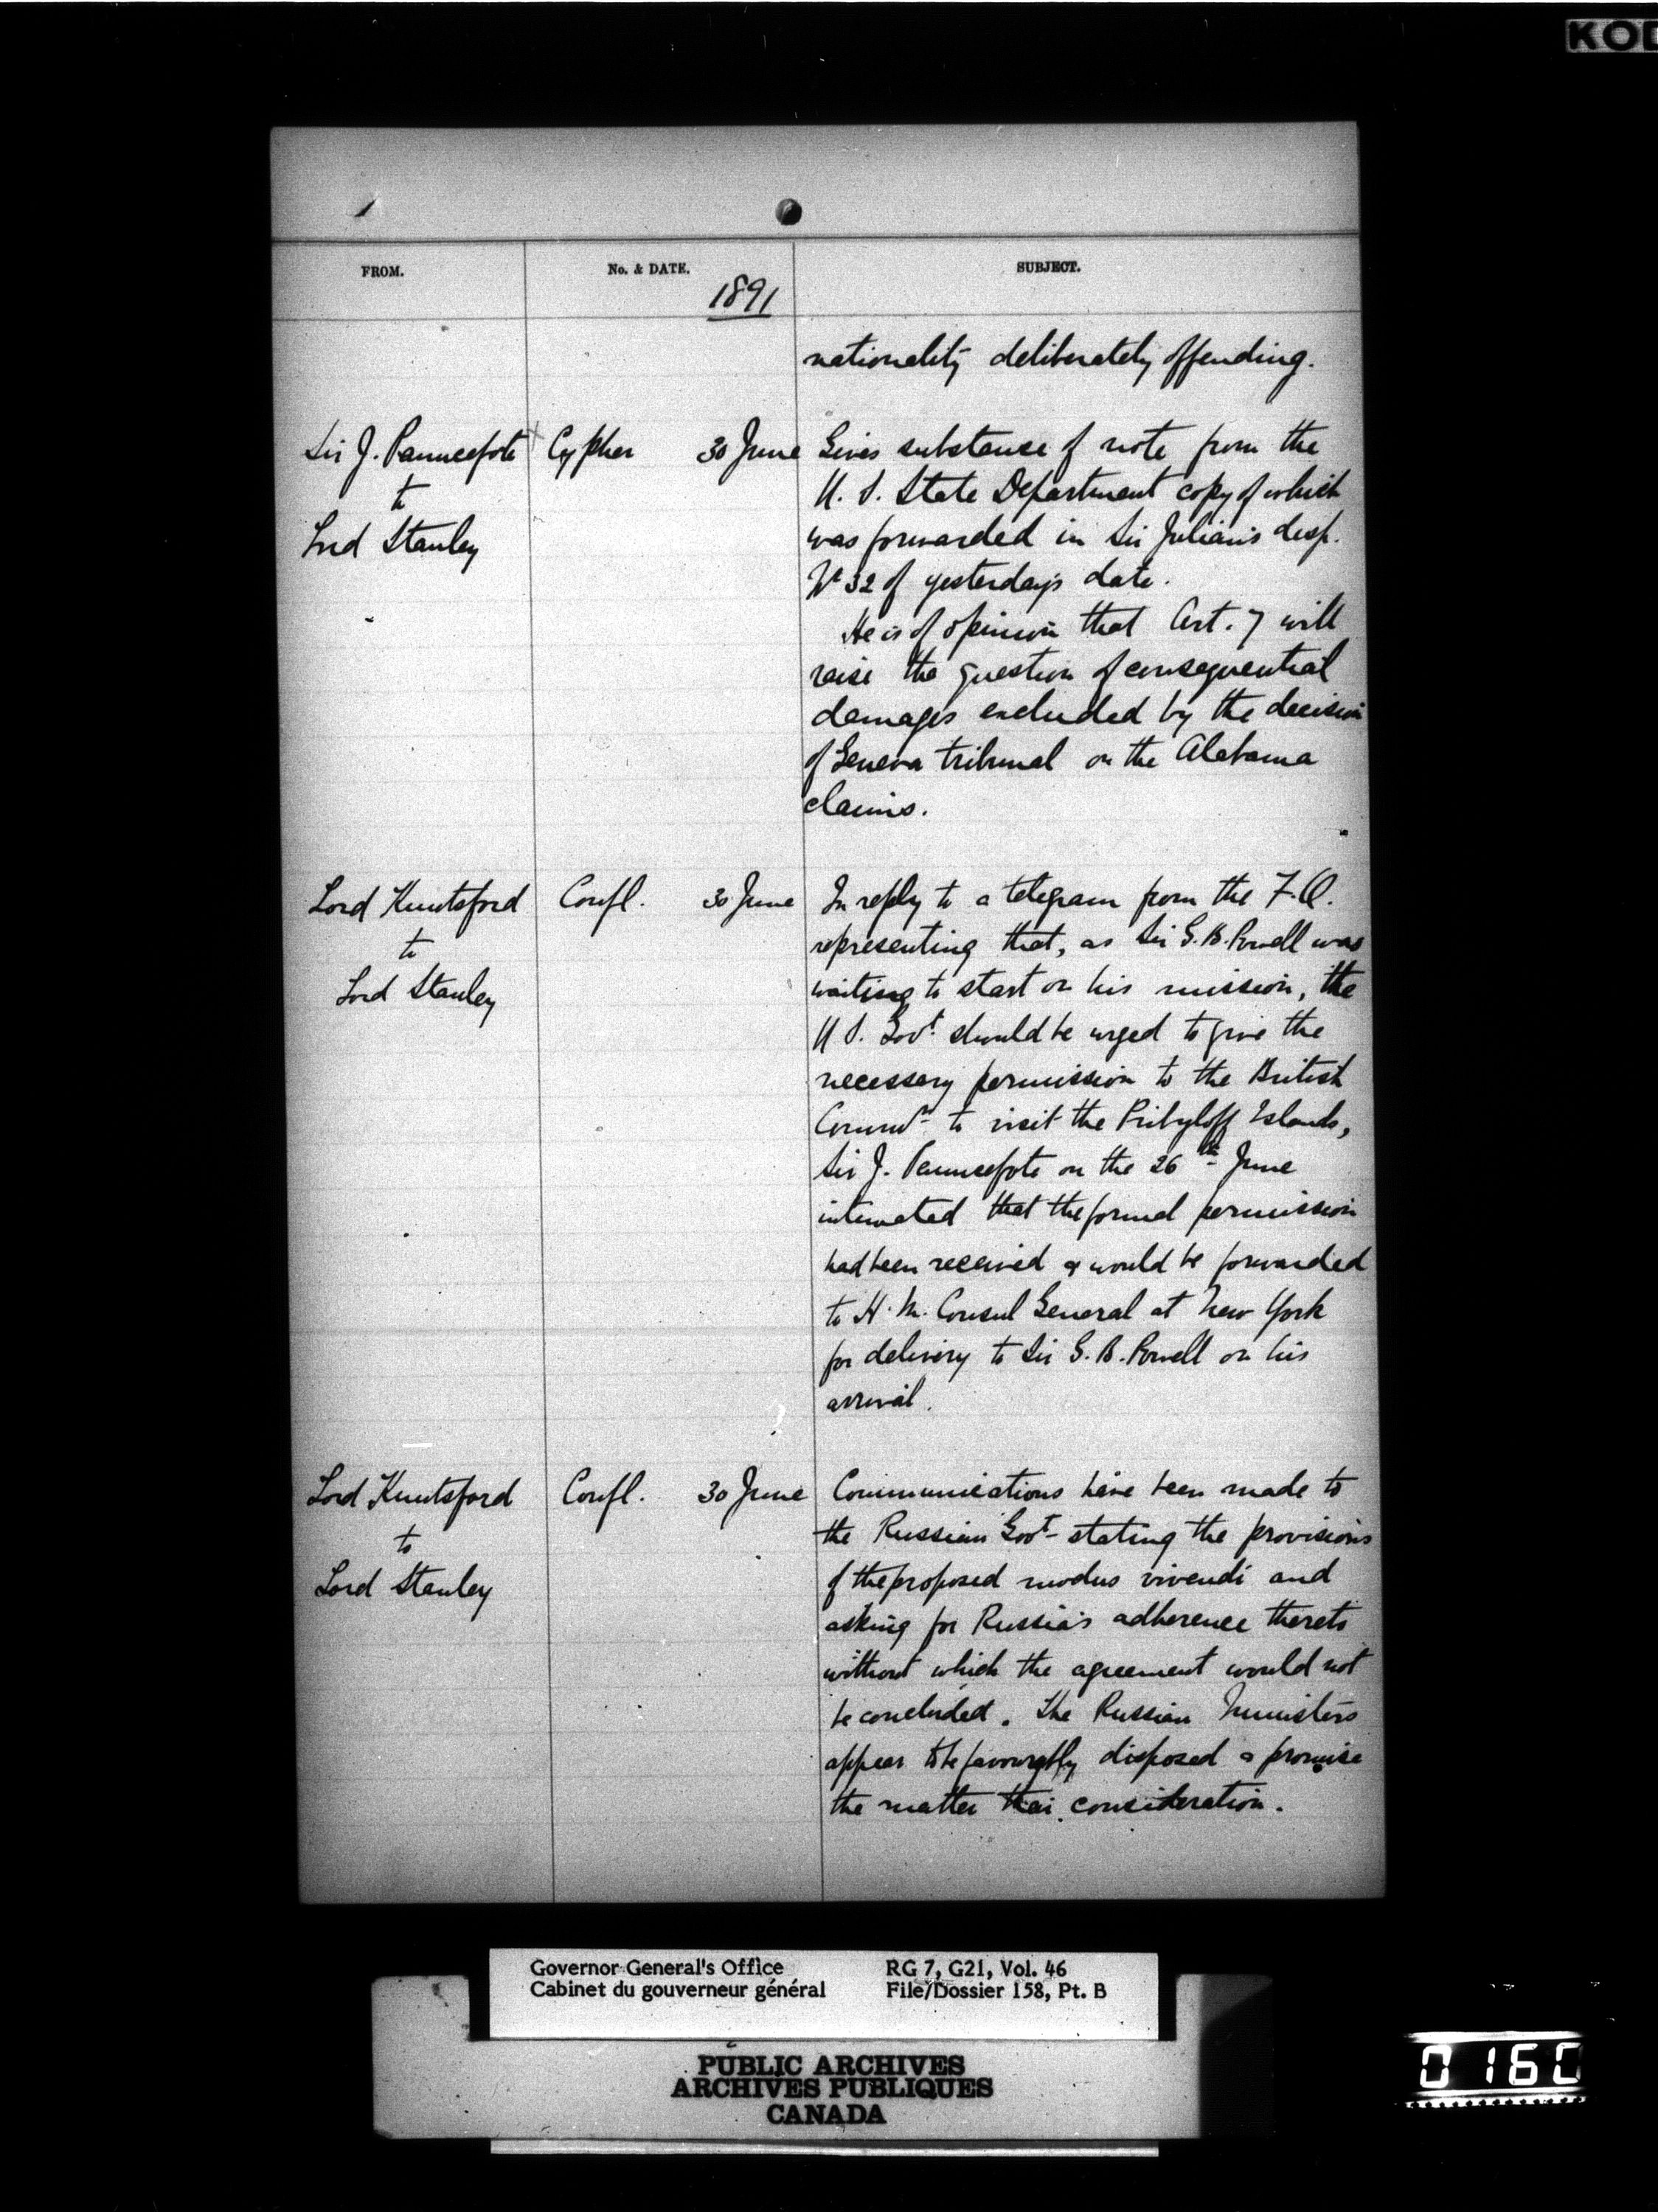 KOD
FROM.
No. & DATE.
SUBJECT.
1891
nationality deliberately offending.
Sir J. Pauncefote
to
Lord Stanley
Cypher 30 June
Gives substance of note from the
U. S. State Department copy of which
was forwarded in Sir Julian's desp.
No 32 of yesterday's date.
He is of opinion that Art. 7 will
raise the question of consequential
damages excluded by the decision
of Geneva tribunal on the Alabama
claims.
Lord Knutsford
to
Lord Stanley
Confl. 30 June
In reply to a telegram from the F.O.
representing that, as Sir G. B. Powell was
waiting to start on his mission, the
U S. Govt. should be urged to give the
necessary permission to the British
Commrs to visit the Pribyloff Islands,
Sir J. Pauncefote on the 26th June
intimated that the formal permission
had been received & would be forwarded
to H. M. Consul General at New York
for delivery to Sir G. B. Powell on his
arrival.
Lord Knutsford
to
Lord Stanley
Confl. 30 June
Communications have been made to
the Russian Govt stating the provisions
of the proposed modus vivendi and
asking for Russia's adherence thereto
without which the agreement would not
be concluded. The Russian Ministers
appear to be favourably disposed & promise
the matter their consideration.
Governor General's Office
Cabinet du gouverneur général
RG 7, G21, Vol. 46
File/Dossier 158, Pt. B
PUBLIC ARCHIVES
ARCHIVES PUBLIQUES
CANADA
0160